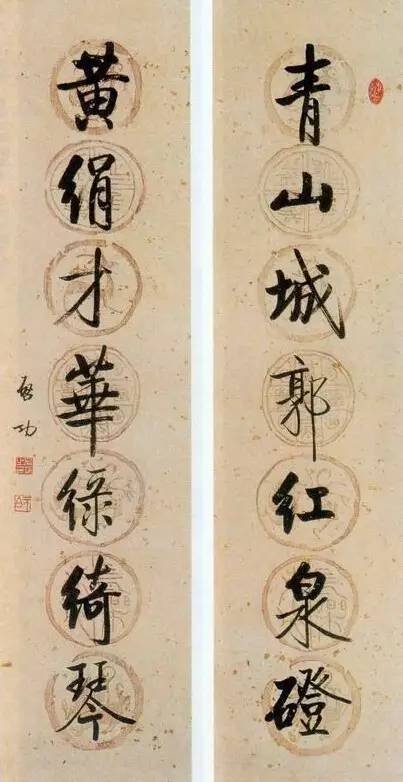 青山城郭红泉磴
黄絹才華綠綺琴
啟功